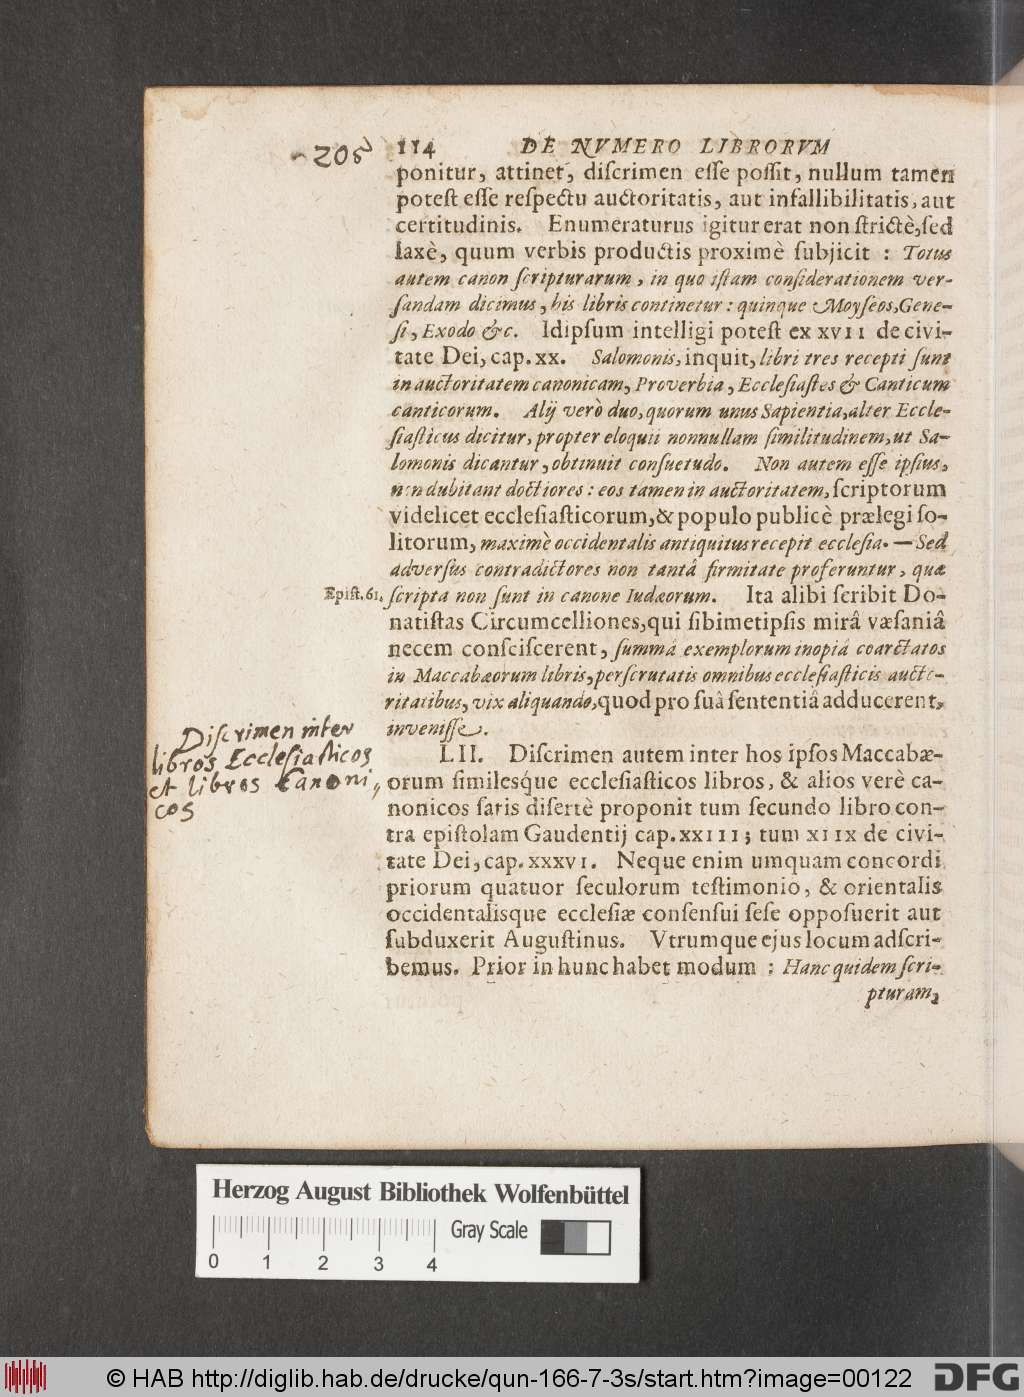 205 114 DE NVMERO LIBRORVM
ponitur, attinet, diſcrimen eſſe poſſit, nullum tamen
poteſt eſſe reſpectu auctoritatis, aut infallibilitatis, aut
certitudinis. Enumeraturus igitur erat non ſtrictè, ſed
laxè, quum verbis productis proximè ſubjicit : Totus
autem canon ſcripturarum, in quo iſtam conſiderationem ver-
ſandam dicimus, his libris continetur : quinque Moyſeos, Gene-
ſi, Exodo &c. Idipſum intelligi poteſt ex XVII de civi-
tate Dei, cap. XX. Salomonis, inquit, libri tres recepti ſunt
in auctoritatem canonicam, Proverbia, Eccleſiaſtes & Canticum
canticorum. Alij verò duo, quorum unus Sapientia, alter Eccle-
ſiaſticus dicitur, propter eloquii nonnullam ſimilitudinem, ut Sa-
lomonis dicantur, obtinuit conſuetudo. Non autem eſſe ipſius,
non dubitant doctiores : eos tamen in auctoritatem, ſcriptorum
videlicet eccleſiaſticorum, & populo publicè prælegi ſo-
litorum, maximè occidentalis antiquitus recepit eccleſia. — Sed
adverſus contradictores non tantâ firmitate proferuntur, quæ
Epiſt. 61. ſcripta non ſunt in canone Iudæorum. Ita alibi ſcribit Do-
natiſtas Circumcelliones, qui ſibimetipſis mirâ væſaniâ
necem conſciſcerent, ſummâ exemplorum inopiâ coarctatos
in Maccabæorum libris, perſcrutatis omnibus eccleſiaſticis aucto-
ritatibus, vix aliquando, quod pro ſuâ ſententiâ adducerent,
inveniſſe.
Diſcrimen inter
libros Eccleſiaſticos
et libros Canoni,,
cos
LII. Diſcrimen autem inter hos ipſos Maccabæ-
orum ſimilesq́ue eccleſiaſticos libros, & alios verè ca-
nonicos ſatis diſertè proponit tum ſecundo libro con-
tra epiſtolam Gaudentij cap. XXIII; tum XIIX de civi-
tate Dei, cap. XXXVI. Neque enim umquam concordi
priorum quatuor ſeculorum teſtimonio, & orientalis
occidentalisque eccleſiæ conſenſui ſeſe oppoſuerit aut
ſubduxerit Auguſtinus. Vtrumque ejus locum adſcri-
bemus. Prior in hunc habet modum : Hanc quidem ſcri-
pturam,
Herzog August Bibliothek Wolfenbüttel
Gray Scale
0 1 2 3 4
© HAB http://diglib.hab.de/drucke/qun-166-7-3s/start.htm?image=00122 DFG